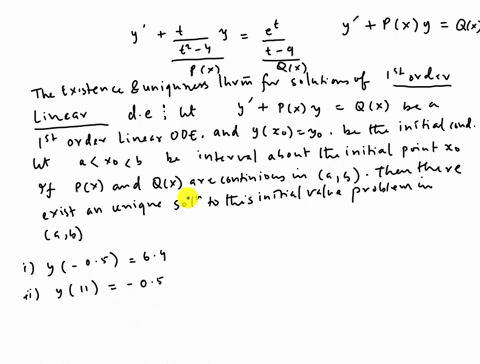 y' + t/(t²-4) y = e^t/(t-9)    y' + P(x) y = Q(x)
P(x)    Q(x)
The Existence & uniqness thrm for solutions of 1st order
Linear d.e : let y' + P(x) y = Q(x) be a
1st order Linear ODE, and y(x0) = y0. be the initial cond.
let a < x0 < b be interval about the initial point x0
If P(x) and Q(x) are continious in (a,b). Then there
exist an unique sol" to this initial value problem in
(a,b)
i) y(-0.5) = 6.4
ii) y(11) = -0.5